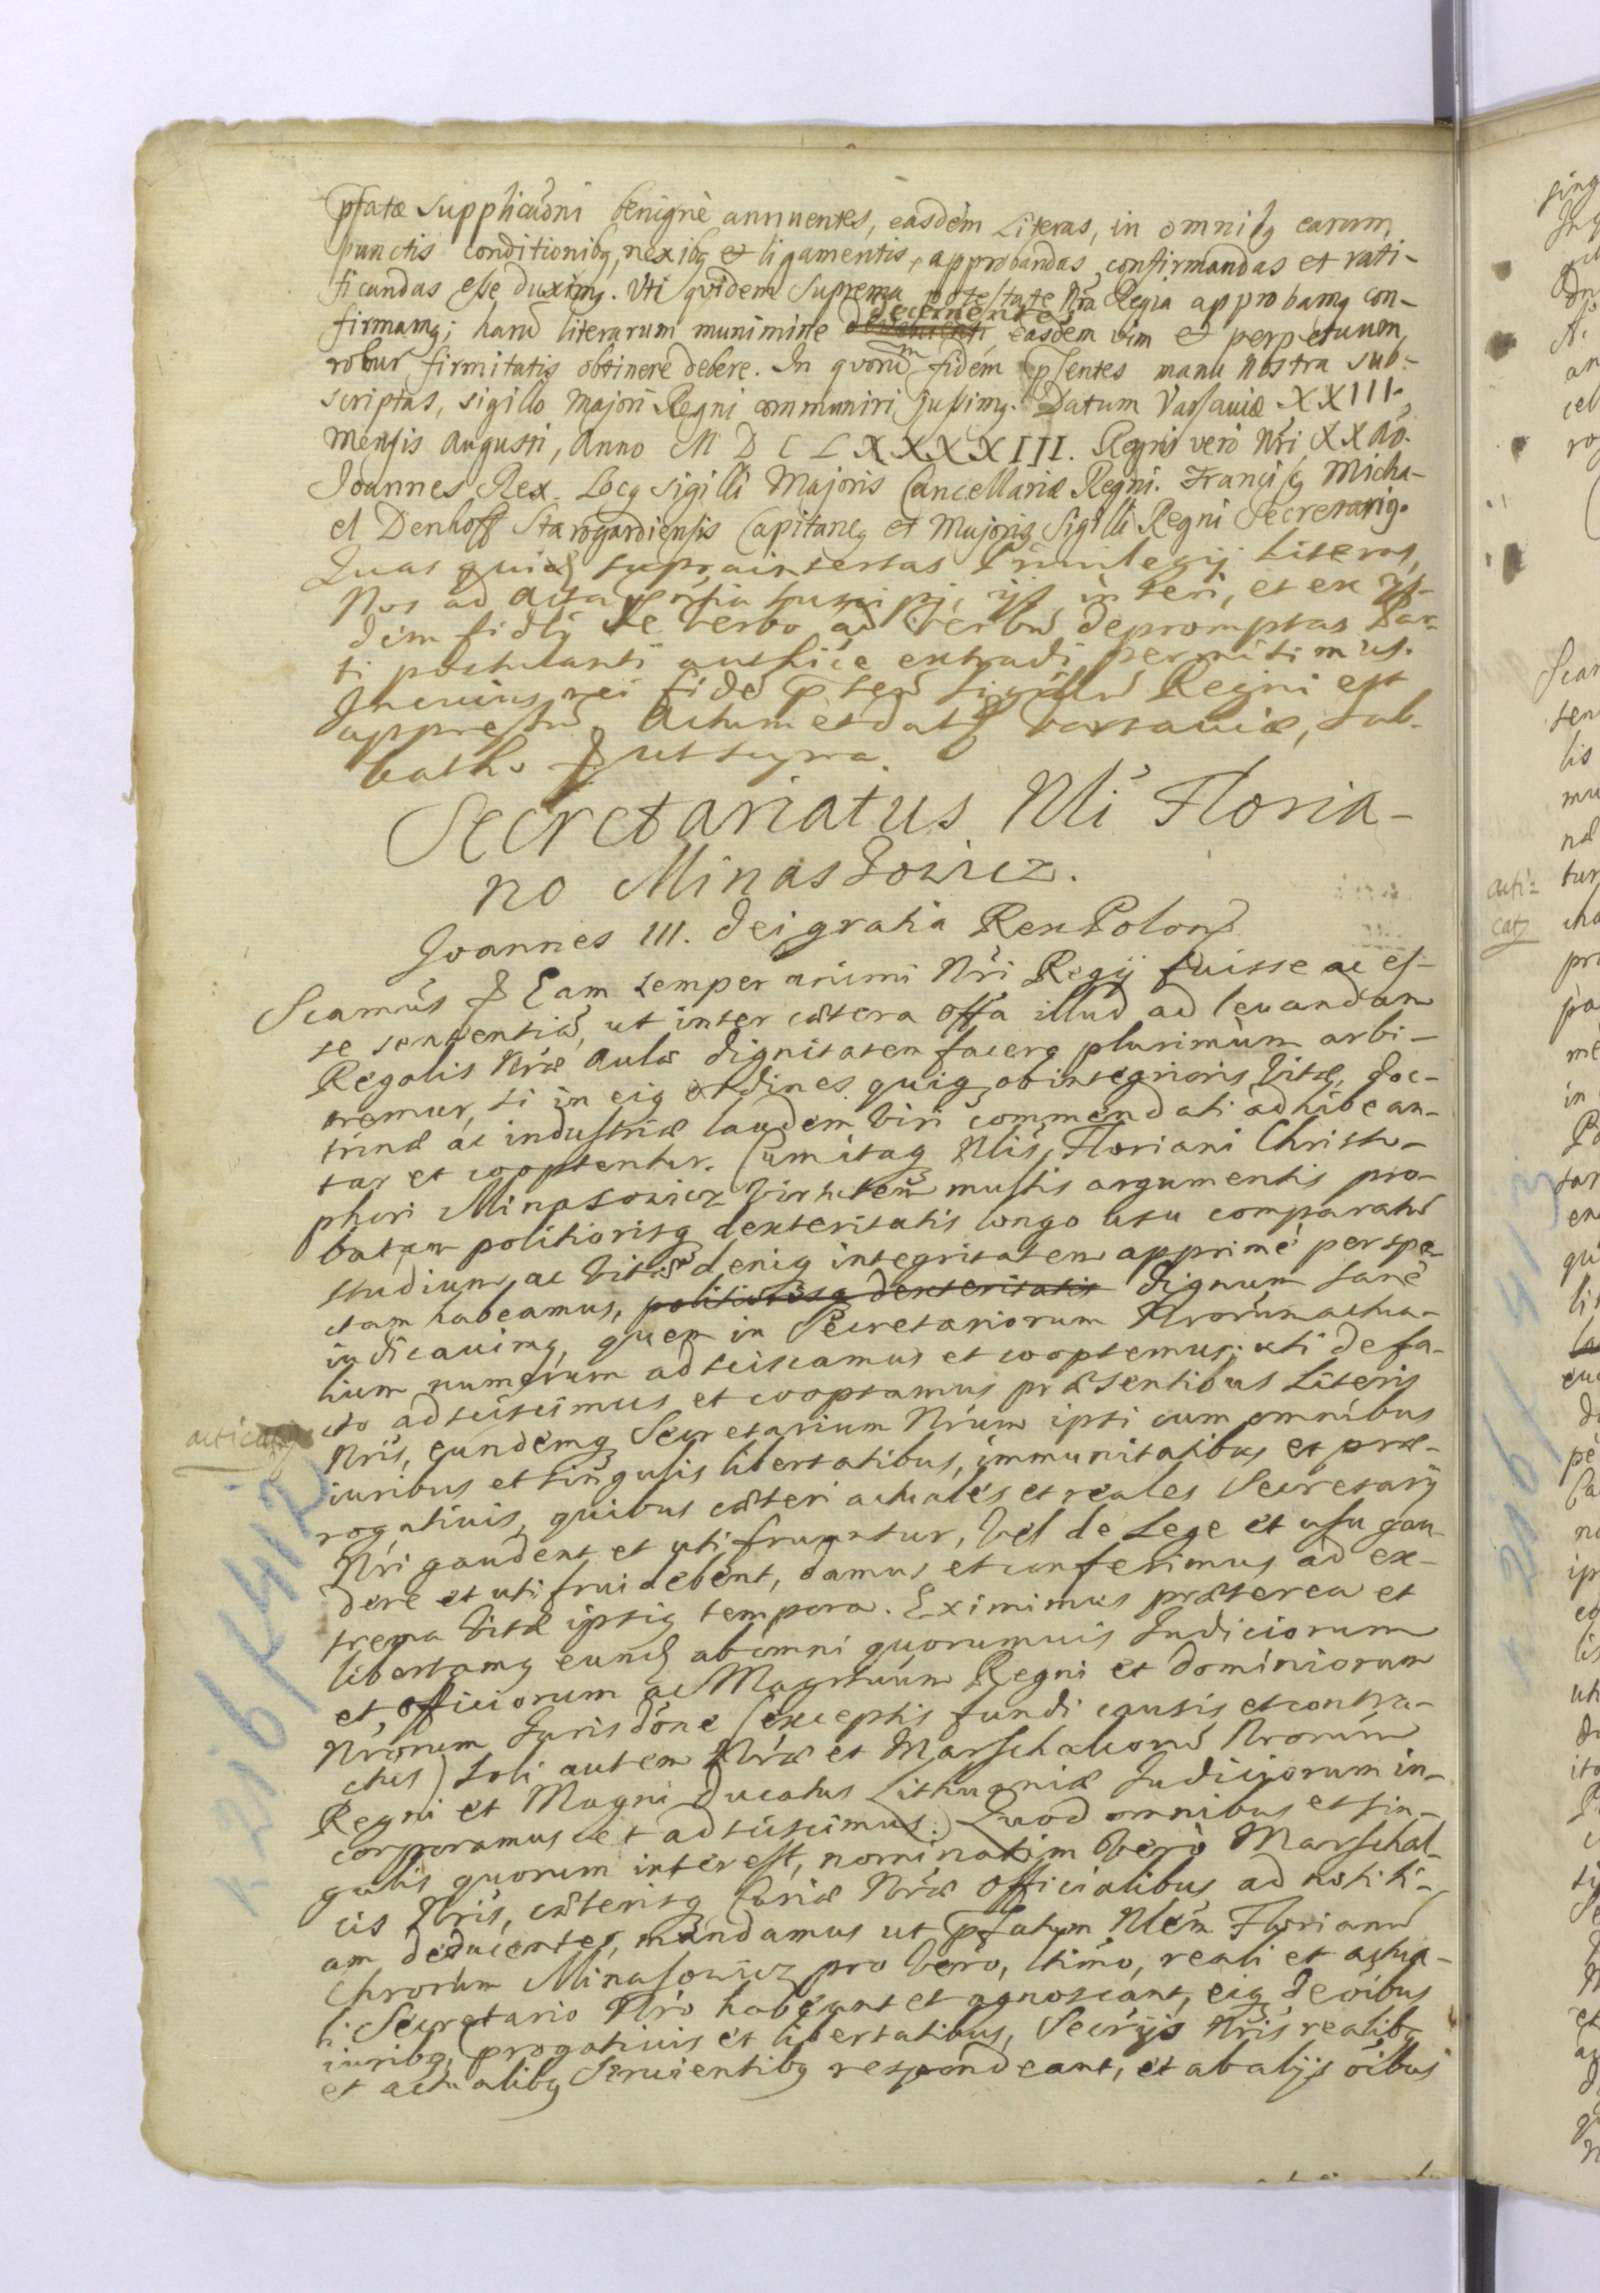 pfatæ Supplicaõni benignè annuentes, easdem Literas, in omnibq earum
punctis conditionibq, nexibq et ligamentis, approbandas confirmandas et rati-
ficandas esse duximq. Uti quidem Suprema potestate Nrã Regia approbamq con-
firmamq; harũ literarum munimine decernente easdem vim et perpetuum
robur firmitatis obtinere debere. In quorũ fidem pñtes manu Nostra sub-
scriptas, sigillo Majori Regni communiri jussimq. Datum Varsaviæ XXIII.
Mensis Augusti, Anno M D C L X X X X III. Regni verò Nri XX Aõ.
Joannes Rex. Locq Sigilli Majoris Cancellariæ Regni. Francisq Micha-
el Denhoff Starogardiensis Capitaneq et Majoris Sigilli Regni Secretariq.
Quas quid suprainsertas Privilegij Literas,
Nos ad Acta pñtia suscipi, ijs inseri, et ex ijs-
dem fidlr de verbo ad verbũ depromptas Par-
ti postulanti authice extradi permisimus.
In cuius rei fidẽ pñtes Sigillũ Regni est
appressũ. Actum et dat Varsaviæ, Sab-
batho ut supra.
Secretariatus Nli Floria-
no Minasowicz.
Joannes III. Dei gratia Rex Polon
Scamus Eam semper animi Nri Regij fuisse ac es-
se sententiã, ut inter cætera offa illud ad levandam
Regalis Nræ Aulæ dignitatem facere plurimùm arbi-
tremur, si in eiq ordines quiq ob integrioris Vitæ, doc-
trinæ ac industriæ laudem Viri commendati adhibean-
tur et cooptentur. Cum itaq Nlis Floriani Christo-
phori Minasowicz Virtutem multis argumentis pro-
batam politiorisq dexteritatis longo usu comparatũ
studium, ac Vitæ deniq integritatem apprimè perspe-
ctam habeamus, politiorisq dexteritatis dignum sanè
iudicavimq, quem in Secretariorum Nrorum actua-
lium numerum adsciscamus et cooptemus; uti de fa-
cto adsciscimus et cooptamus præsentibus Literis
Nris, eundemq Secretarium Nrum ipsi cum omnibus
iuribus et singulis libertatibus, immunitatibus et præ-
rogativis, quibus cæteri actuales et reales Secretarij
Nri gaudent et uti fruuntur, vel de Lege et usu gau-
dere et uti frui debent, damus et conferimus ad ex-
trema Vitæ ipsiq tempora. Eximimus præterea et
libertamq eund ab omni quorumvis Iudiciorum
et Officiorum ac Magistratuum Regni et Dominiorum
Nrorum Jurisdõne (exceptis fundi causis et contra-
ctus) soli autem Nræ et Marschalcorũ Nrorum
Regni et Magni Ducatus Lithuaniæ Iudiciorum in-
corporamus et adsciscimus. Quod omnibus et sin-
gulis quorum interest, nominatim verò Marschal-
cis Nris, cæterisq Curiæ Nræ Officialibus ad notiti-
am deducentes, mandamus ut pfatum Nlem Florianũ
Chrorum Minasowicz pro vero, ltimo, reali et actua-
li Secretario Nro habeant et agnoscant, eiq de oibus
iuribq, progativis et libertatibus, Secrijs Nris realibq
et actualibq Servientibq respondeant, et ab alijs oibus
acticat
acti-
cat